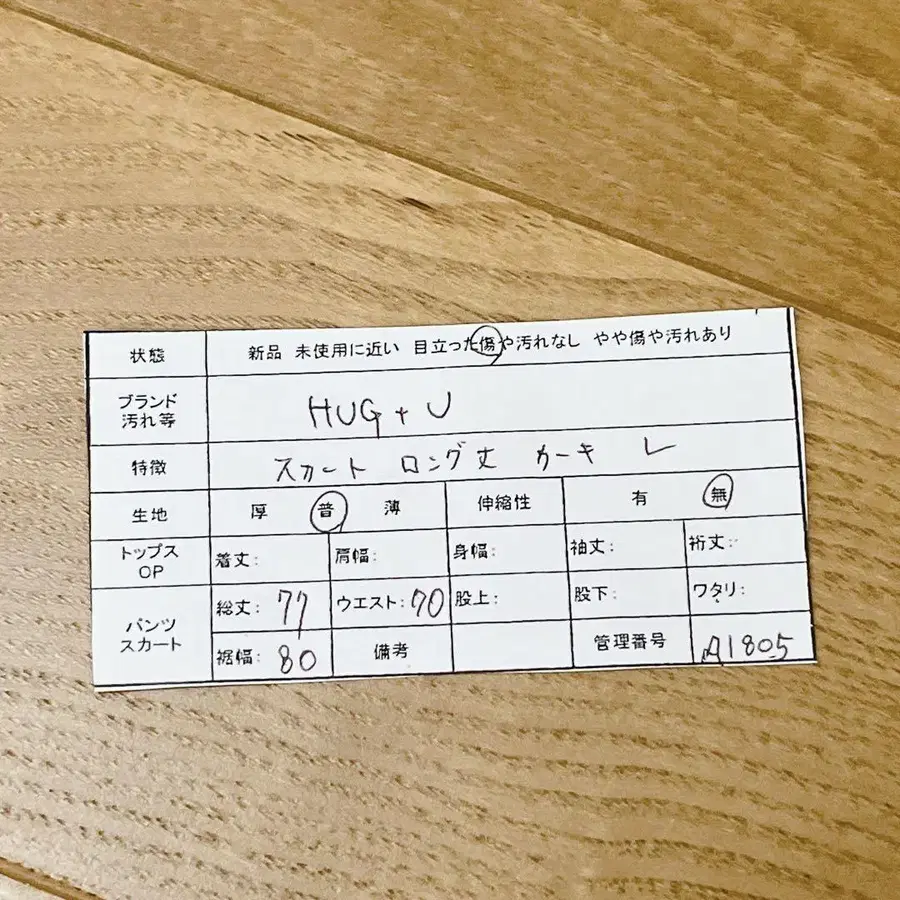 状態 新品 未使用に近い 目立った傷や汚れなし やや傷や汚れあり
ブランド
汚れ等
HUG + U
特徴 スカート ロング丈 カーキ レ
生地 厚 普 薄 伸縮性 有 無
トップス
OP
着丈: 肩幅: 身幅: 袖丈: 裄丈:
パンツ
スカート
総丈: 77 ウエスト: 70 股上: 股下: ワタリ:
裾幅: 80 備考 管理番号 A1805